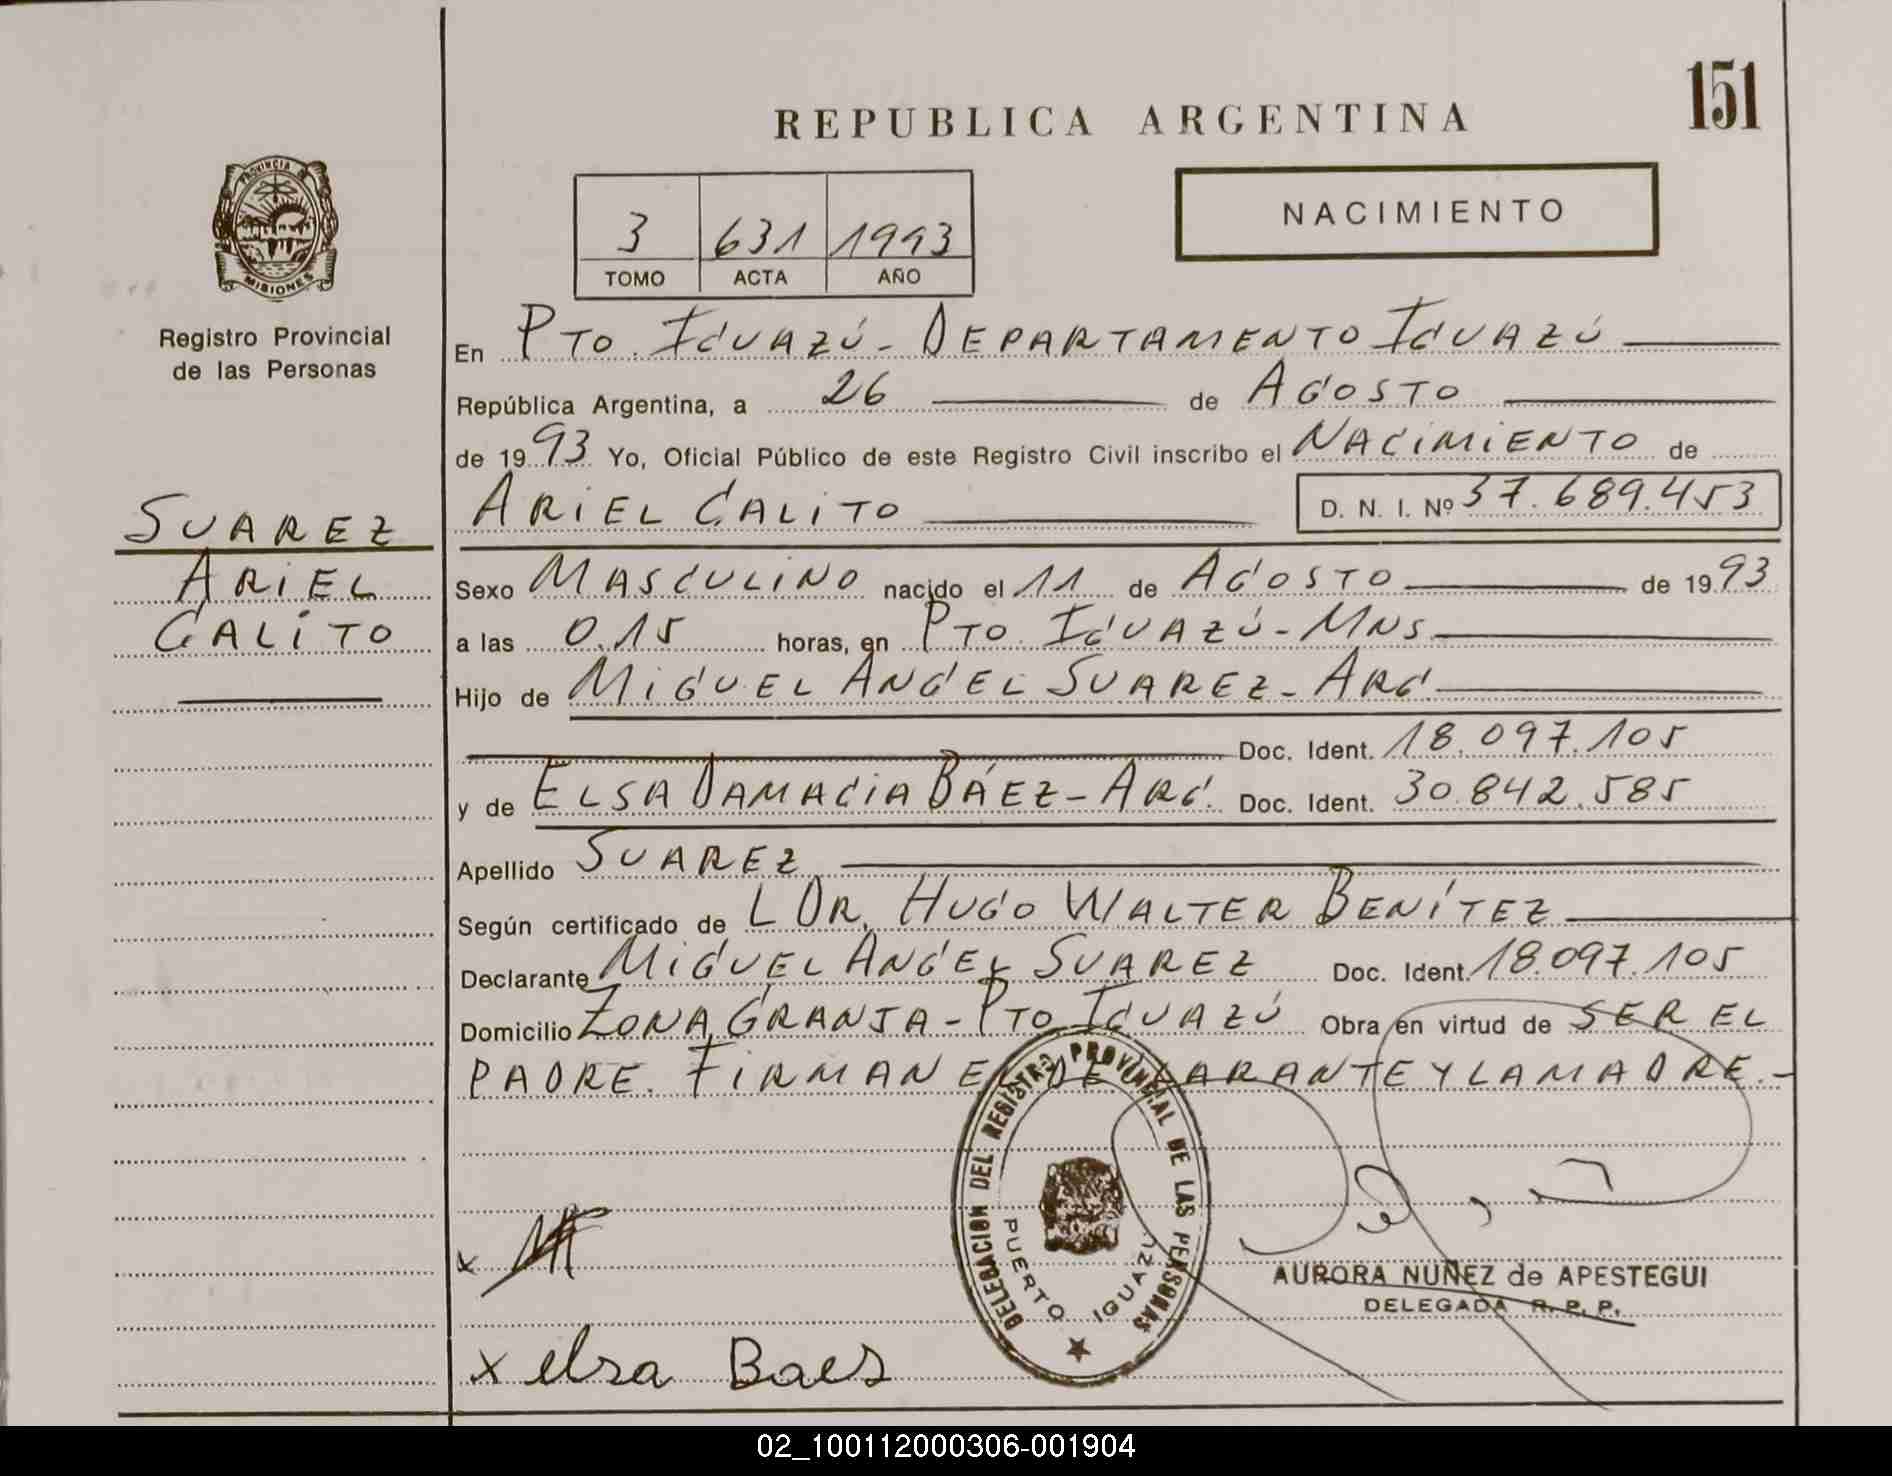 151
REPUBLICA ARGENTINA
PROVINCIA DE
MISIONES
Registro Provincial
de las Personas
3 631 1993
TOMO ACTA AÑO
NACIMIENTO
En PTO. IGUAZÚ - DEPARTAMENTO IGUAZÚ
República Argentina, a 26 de AGOSTO
de 1993 Yo, Oficial Público de este Registro Civil inscribo el NACIMIENTO de
ARIEL GALITO D. N. I. Nº 37.689.453
SUAREZ
ARIEL
GALITO
Sexo MASCULINO nacido el 11 de AGOSTO de 1993
a las 0.15 horas, en PTO. IGUAZÚ - MNS.
Hijo de MIGUEL ANGEL SUAREZ - ARG
Doc. Ident. 18.097.105
y de ELSA DAMACIA BÁEZ - ARG. Doc. Ident. 30.842.585
Apellido SUAREZ
Según certificado de L DR. HUGO WALTER BENÍTEZ
Declarante MIGUEL ANGEL SUAREZ Doc. Ident. 18.097.105
Domicilio ZONA GRANJA - PTO IGUAZÚ Obra en virtud de SER EL
PADRE. FIRMAN EL DECLARANTE Y LA MADRE.-
DELEGACION DEL REGISTRO PROVINCIAL DE LAS PERSONAS
PUERTO IGUAZU
x
AURORA NUÑEZ de APESTEGUI
DELEGADA R. P. P.
x elsa Baes
02_100112000306-001904